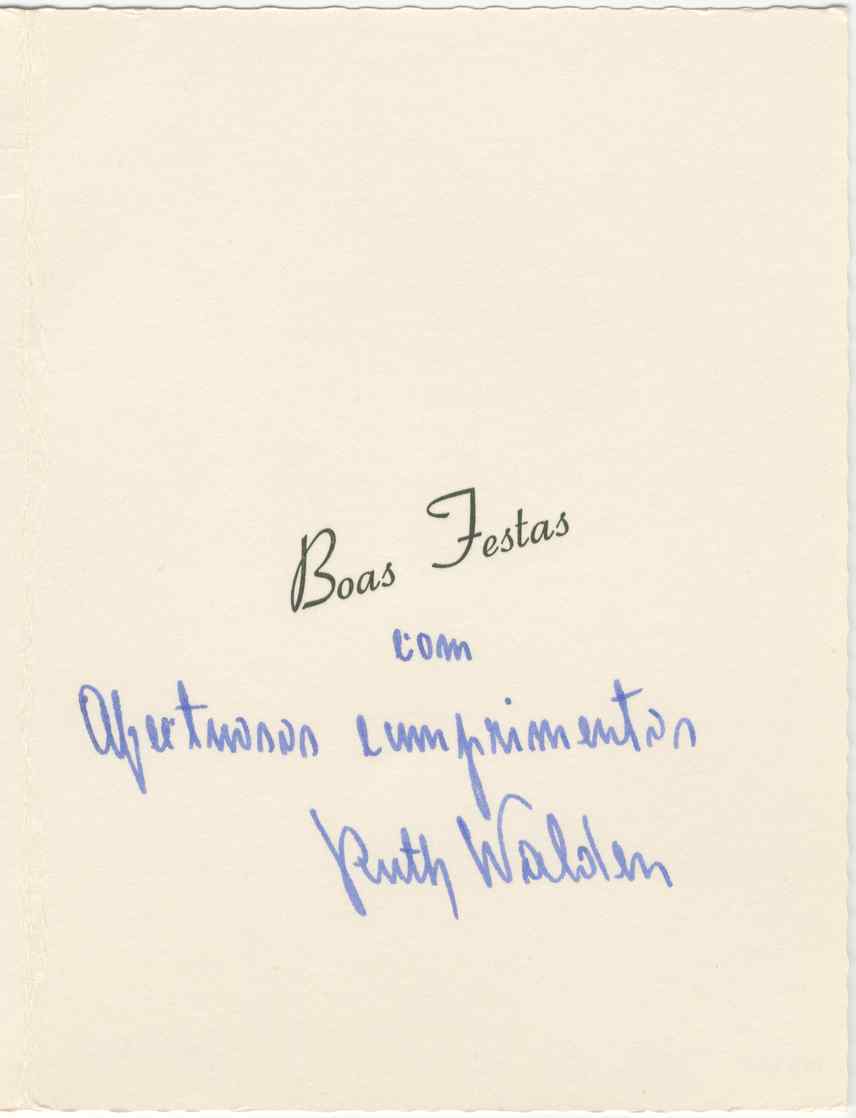 Boas Festas
com
Afectuosos cumprimentos
Ruth Walden